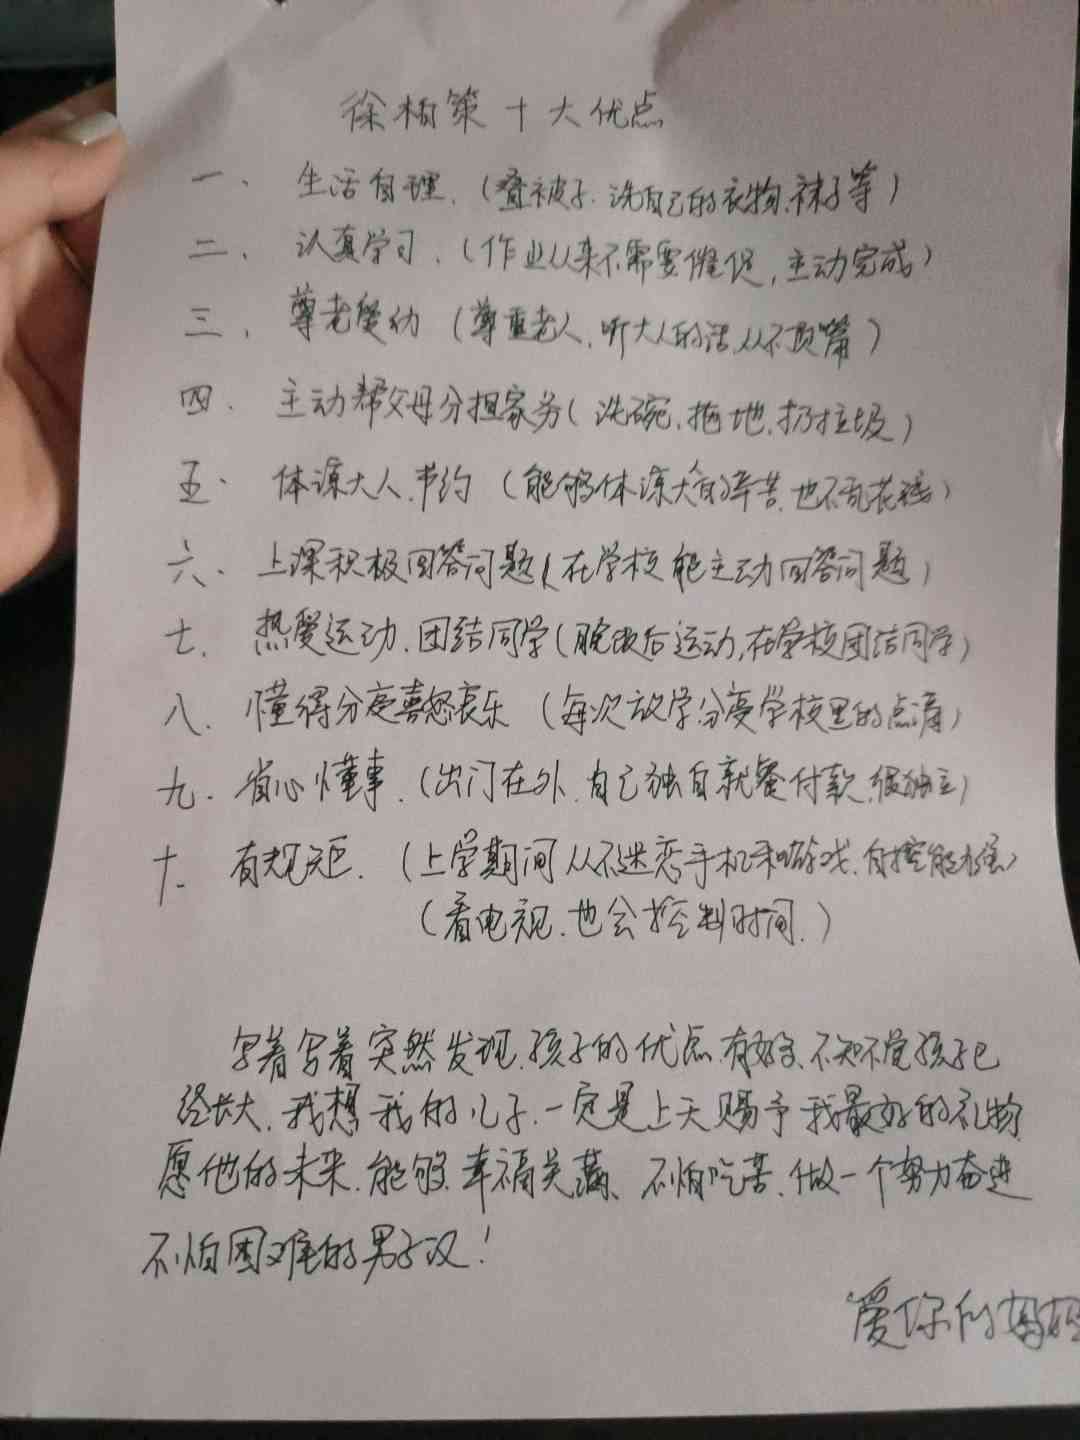 徐柏策十大优点
一、生活自理.(叠被子.洗自己的衣物.袜子等)
二、认真学习.(作业从来不需要催促,主动完成)
三、尊老爱幼(尊重老人,听大人的话.从不顶嘴)
四.主动帮父母分担家务(洗碗.拖地.扔垃圾)
五.体谅大人.节约(能够体谅大人的辛苦.也不乱花钱)
六、上课积极回答问题(在学校能主动回答问题)
七.热爱运动.团结同学(晚饭后运动,在学校团结同学)
八.懂得分享喜怒哀乐(每次放学分享学校里的点滴)
九.省心懂事.(出门在外.自己独自就餐付款.很独立)
十.有规矩.(上学期间从不迷恋手机和游戏.自控能力强)
(看电视.也会控制时间.)
写着写着突然发现.孩子的优点有好多.不知不觉孩子已
经长大.我想我的儿子.一定是上天赐予我最好的礼物
愿他的未来.能够.幸福美满、不怕吃苦.做一个努力奋进
不怕困难的男子汉!
爱你的妈妈